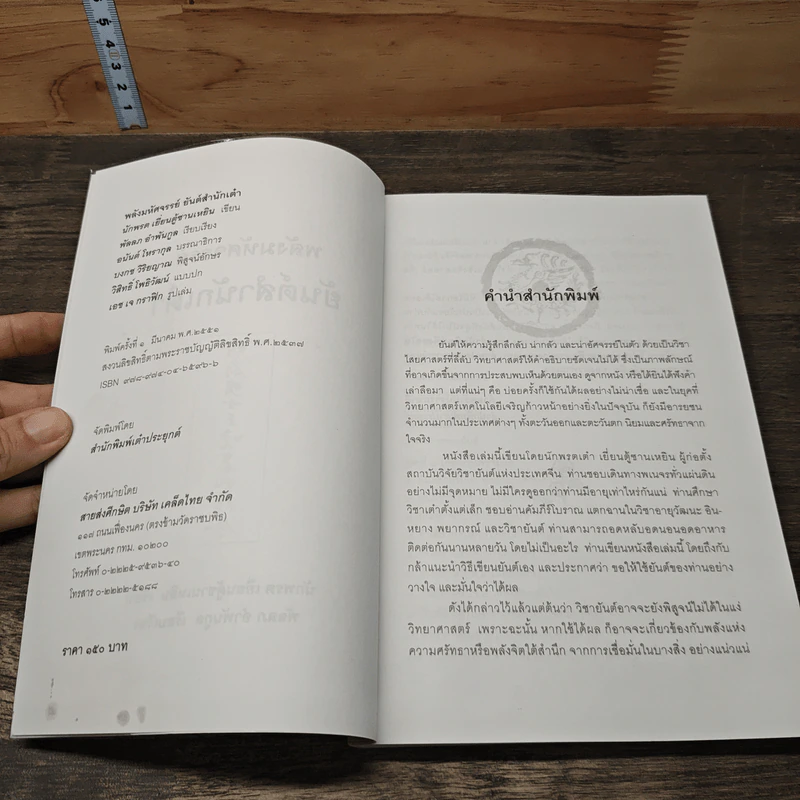 5
4
3
2
1
พลังมหัศจรรย์ ยันต์สำนักเต๋า
นักพรต เยี่ยนตู้ซานเหยิน เขียน
พัลลภ อำพันกูล เรียบเรียง
อนันต์ โหรากุล บรรณาธิการ
บงกช วีริยญาณ พิสูจน์อักษร
วิสิทธิ์ โพธิวัฒน์ แบบปก
เอช เจ กราฟิก รูปเล่ม
พิมพ์ครั้งที่ ๑ มีนาคม พ.ศ.๒๕๕๑
สงวนลิขสิทธิ์ตามพระราชบัญญัติลิขสิทธิ์ พ.ศ.๒๕๓๗
ISBN ๙๗๔-๙๗๔-๐๔-๖๕๙๖-๖
จัดพิมพ์โดย
สำนักพิมพ์เต๋าประยุกต์
จัดจำหน่ายโดย
สายส่งศึกษิต บริษัท เคล็ดไทย จำกัด
๑๑๗ ถนนเฟื่องนคร (ตรงข้ามวัดราชบพิธ)
เขตพระนคร กทม. ๑๐๒๐๐
โทรศัพท์ ๐-๒๒๒๕-๙๕๓๖-๔๐
โทรสาร ๐-๒๒๒๒-๕๑๘๘
ราคา ๑๕๐ บาท
คำนำสำนักพิมพ์
ยันต์ให้ความรู้สึกลึกลับ น่ากลัว และน่าอัศจรรย์ในตัว ด้วยเป็นวิชา
ไสยศาสตร์ที่ลี้ลับ วิทยาศาสตร์ให้คำอธิบายชัดเจนไม่ได้ ซึ่งเป็นภาพลักษณ์
ที่อาจเกิดขึ้นจากการประสบพบเห็นด้วยตนเอง ดูจากหนัง หรือได้ยินได้ฟังคำ
เล่าลือมา แต่ที่แน่ๆ คือ บ่อยครั้งก็ใช้กันได้ผลอย่างไม่น่าเชื่อ และในยุคที่
วิทยาศาสตร์เทคโนโลยีเจริญก้าวหน้าอย่างยิ่งในปัจจุบัน ก็ยังมีอารยชน
จำนวนมากในประเทศต่างๆ ทั้งตะวันออกและตะวันตก นิยมและศรัทธาจาก
ใจจริง
หนังสือเล่มนี้เขียนโดยนักพรตเต๋า เยี่ยนตู้ซานเหยิน ผู้ก่อตั้ง
สถาบันวิจัยวิชายันต์แห่งประเทศจีน ท่านชอบเดินทางพเนจรทั่วแผ่นดิน
อย่างไม่มีจุดหมาย ไม่มีใครดูออกว่าท่านมีอายุเท่าไหร่กันแน่ ท่านศึกษา
วิชาเต๋าตั้งแต่เล็ก ชอบอ่านคัมภีร์โบราณ แตกฉานในวิชาอายุวัฒนะ อิน-
หยาง พยากรณ์ และวิชายันต์ ท่านสามารถอดหลับอดนอนอดอาหาร
ติดต่อกันนานหลายวัน โดยไม่เป็นอะไร ท่านเขียนหนังสือเล่มนี้ โดยถึงกับ
กล้าแนะนำวิธีเขียนยันต์เอง และประกาศว่า ขอให้ใช้ยันต์ของท่านอย่าง
วางใจ และมั่นใจว่าได้ผล
ดังได้กล่าวไว้แล้วแต่ต้นว่า วิชายันต์อาจจะยังพิสูจน์ไม่ได้ในแง่
วิทยาศาสตร์ เพราะฉะนั้น หากใช้ได้ผล ก็อาจจะเกี่ยวข้องกับพลังแห่ง
ความศรัทธาหรือพลังจิตใต้สำนึก จากการเชื่อมั่นในบางสิ่ง อย่างแน่วแน่